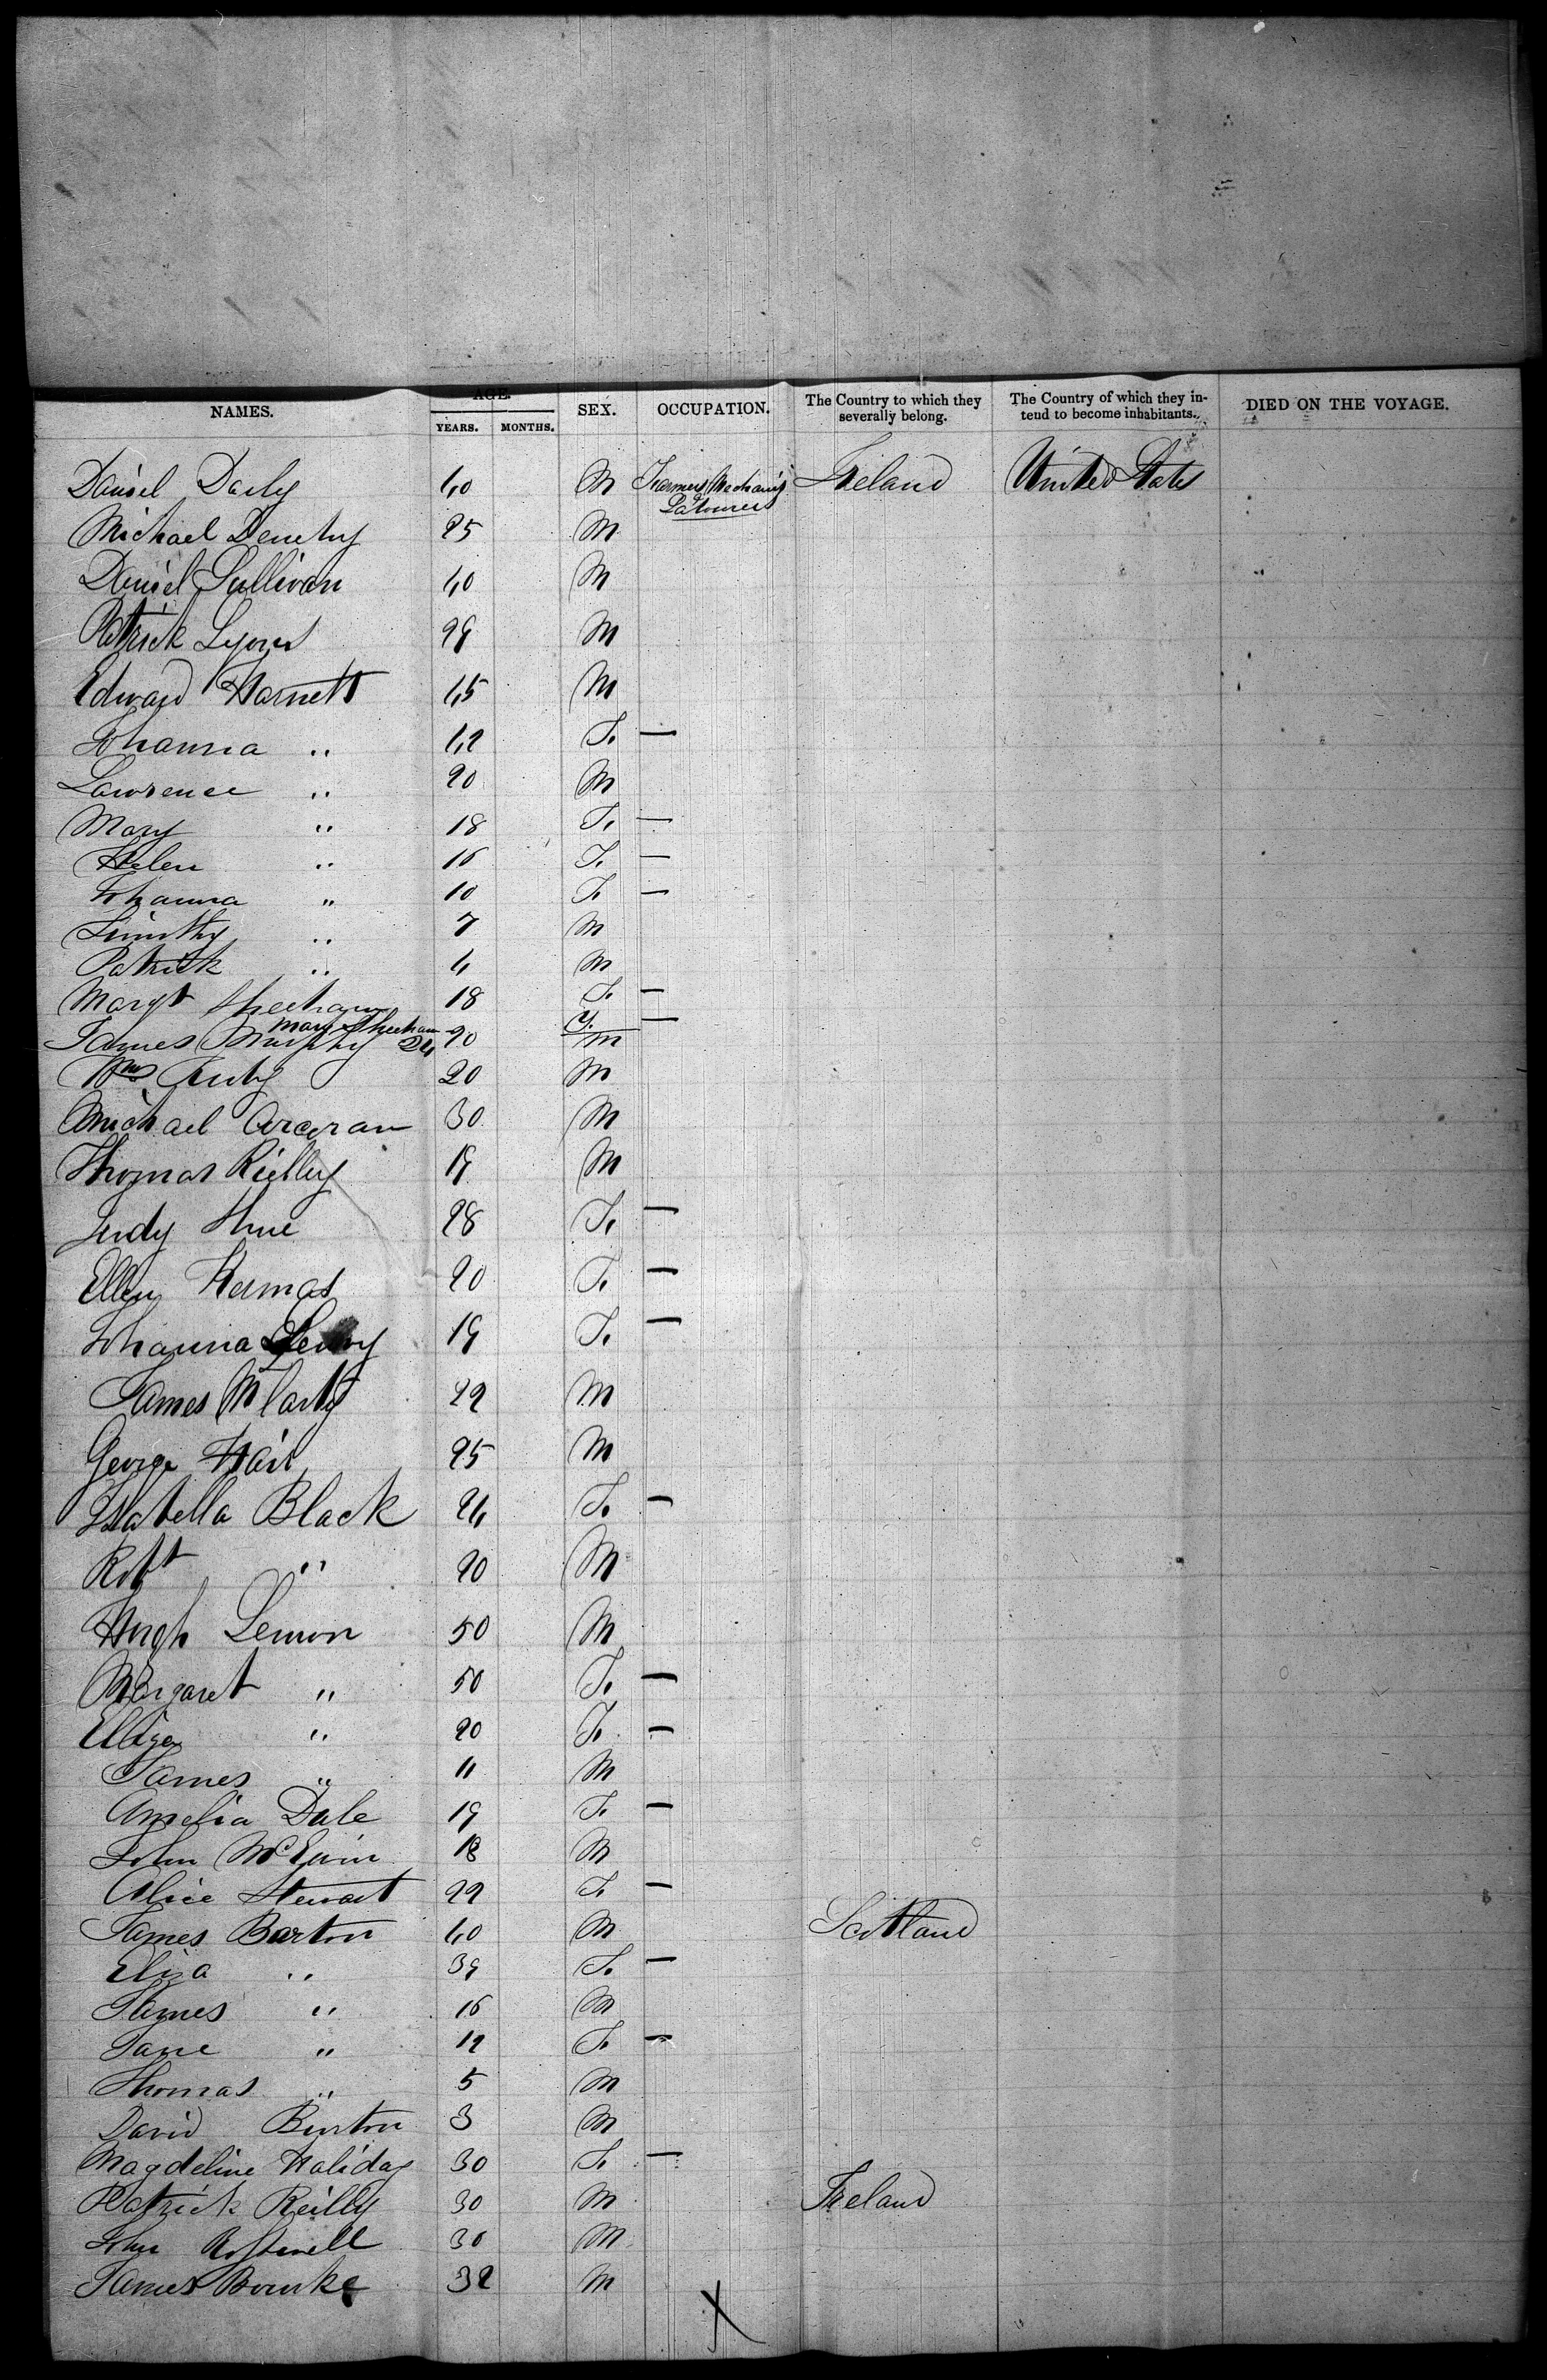 NAMES. AGE. YEARS. MONTHS. SEX. OCCUPATION. The Country to which they severally belong. The Country of which they intend to become inhabitants. DIED ON THE VOYAGE.
Daniel Daily 40 M Farmers Mechanics & Labourers Ireland United States
Michael Denehy 25 M
Daniel Sullivan 40 M
Patrick Lyons 29 M
Edward Harnett 45 M
Johanna " 42 F. —
Lawrence " 20 M
Mary " 18 F. —
Helen " 16 F. —
Johanna " 10 F. —
Timothy " 7 M
Patrick " 4 M
Margt Sheehan 18 F. —
Mary Sheehan 24 F. —
James Murphy 20 M
Wm 20 M
Michael Corcoran 30 M
Thomas Rielley 19 M
Judy Shue 28 F. —
Ellen 20 F. —
Johanna 19 F. —
James McCarty 22 M
George Hair 25 M
Isabella Black 24 F. —
Robt " 20 M
Hugh Lemon 50 M
Margaret " 50 F. —
" 20 F. —
James " 11 M
Amelia Dale 19 F. —
John 18 M
Alice Stewart 22 F. —
James Barton 40 M Scotland
Eliza " 39 F. —
James " 16 M
Jane " 12 F. —
Thomas " 5 M
David Burton 3 M
Magdeline Haliday 30 F. —
Patrick Reilly 30 M Ireland
John 30 M
James Bourke 32 M
X